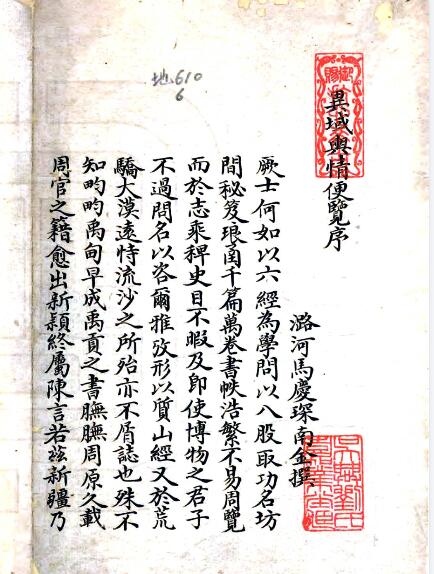 地610
6
御賜
異域輿情便覽序
潞河馬慶琛南金撰
吳興劉氏
厥士何如以六經為學問以八股取功名坊
間秘笈琅函千篇萬卷書帙浩繁不易周覽
而於志乘稗史目不暇及即使博物之君子
不過問名以咨爾雅攷形以質山經又於荒
驕大漠遠恃流沙之所殆亦不屑誌也殊不
知畇畇禹甸早成禹貢之書膴膴周原久載
周官之籍愈出新穎終屬陳言若茲新疆乃